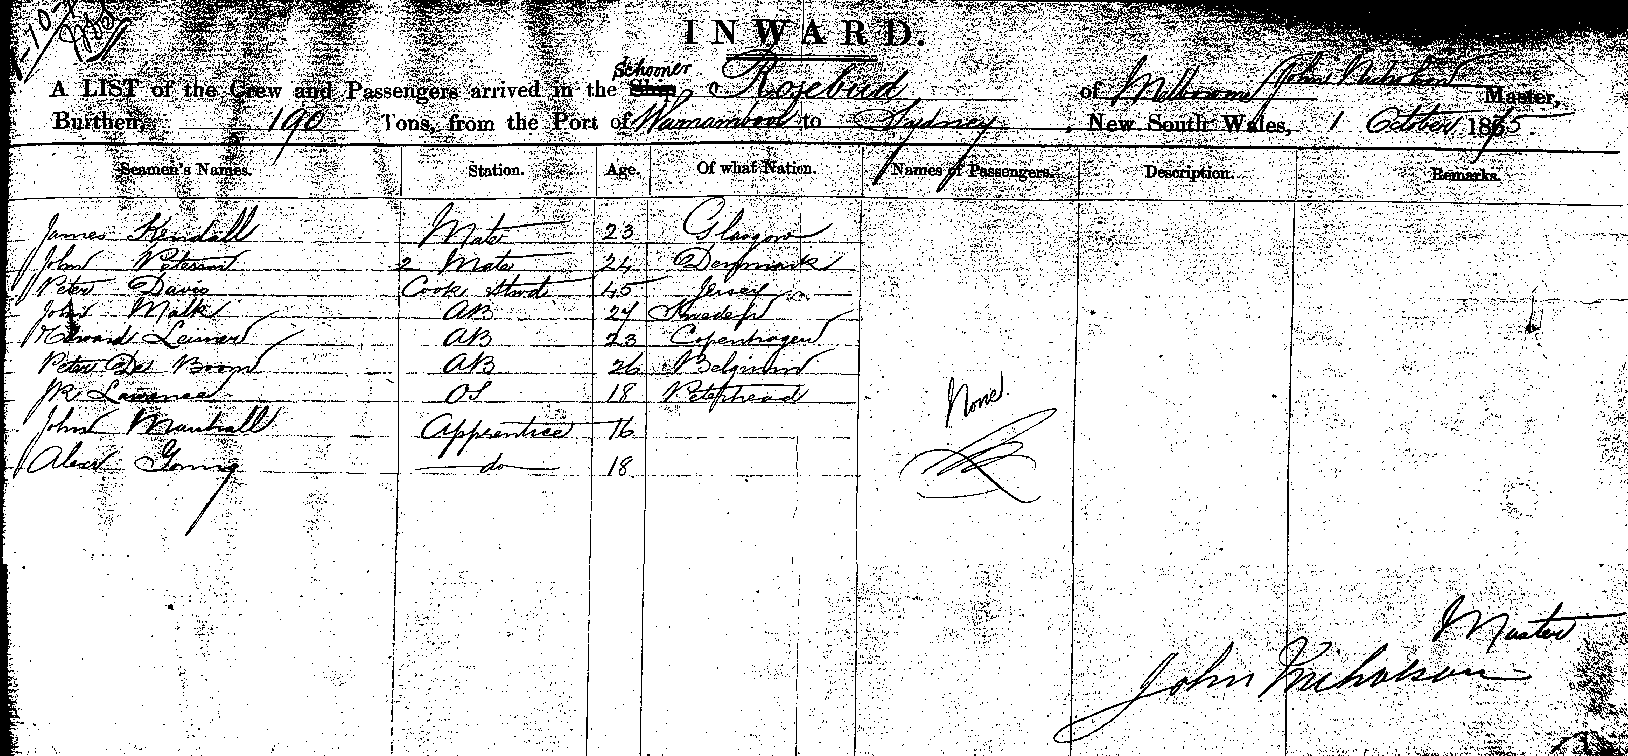 INWARD.
A LIST of the Crew and Passengers arrived in the Schooner Rosebud of Melbourne John Nicholson Master,
Burthen, 190 Tons, from the Port of Warnambool to Sydney, New South Wales, 1 October 1865.
Seamen's Names. Station. Age. Of what Nation. Names of Passengers. Description. Remarks.
James Kendall Mate 23 Glasgow
John Peterson 2 Mate 24 Denmark
Peter Davis Cook Stwd 45 Jersey
John Malk AB 27 Sweden
Edward AB 23 Copenhagen
Peter De Boom AB 26 Belgium
Lawrence OS 18 Peterhead
None.
John Marshall Apprentice 16
Alexr Young do 18
Master
John Nicholson